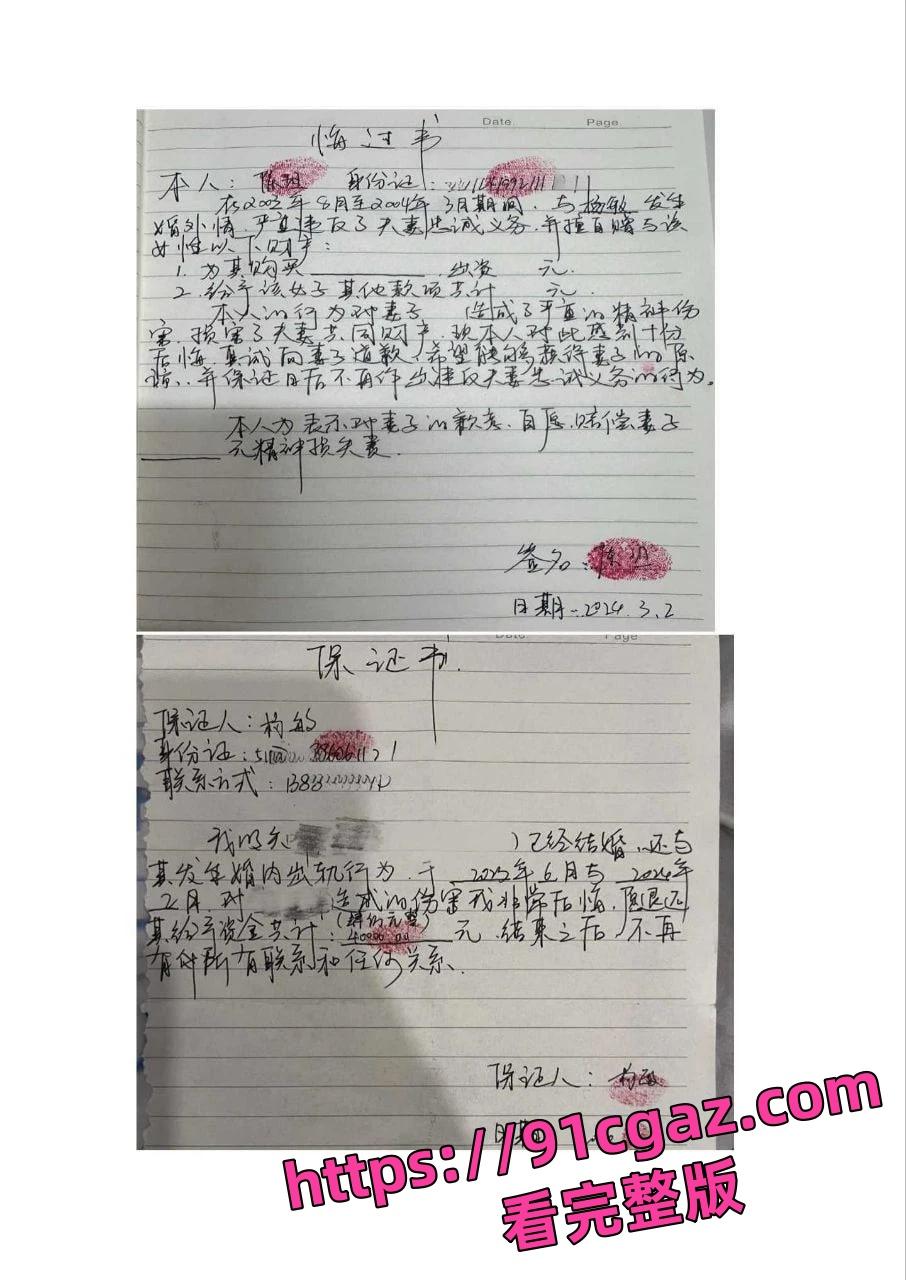 Date. Page.
悔过书
本人： 身份证：
在2023年8月至2024年3月期间，与杨敏发生
婚外情，严重违反了夫妻忠诚义务，并擅自赠与该
女性以下财产：
1. 为其购买 出资 元.
2. 给予该女子其他款项共计 元.
本人的行为对妻子 造成了严重的精神伤
害，损害了夫妻共同财产，现本人对此感到十分
后悔，真诚向妻子道歉，希望能够获得妻子的原
谅，并保证日后不再作出违反夫妻忠诚义务的行为。
本人为表示对妻子的歉意，自愿赔偿妻子
元精神损失费.
签名：
日期：2024.3.2
Date Page
保证书.
保证人：杨敏
身份证：
联系方式：
我明知 已经结婚，还与
其发生婚内出轨行为，于 年6月与2024年
2月 对 造成的伤害我非常后悔，愿退还
其给予资金共计：40000.00元，结束之后，不再
有 所有联系和任何关系.
保证人：
日期
https://91cgaz.com
看完整版